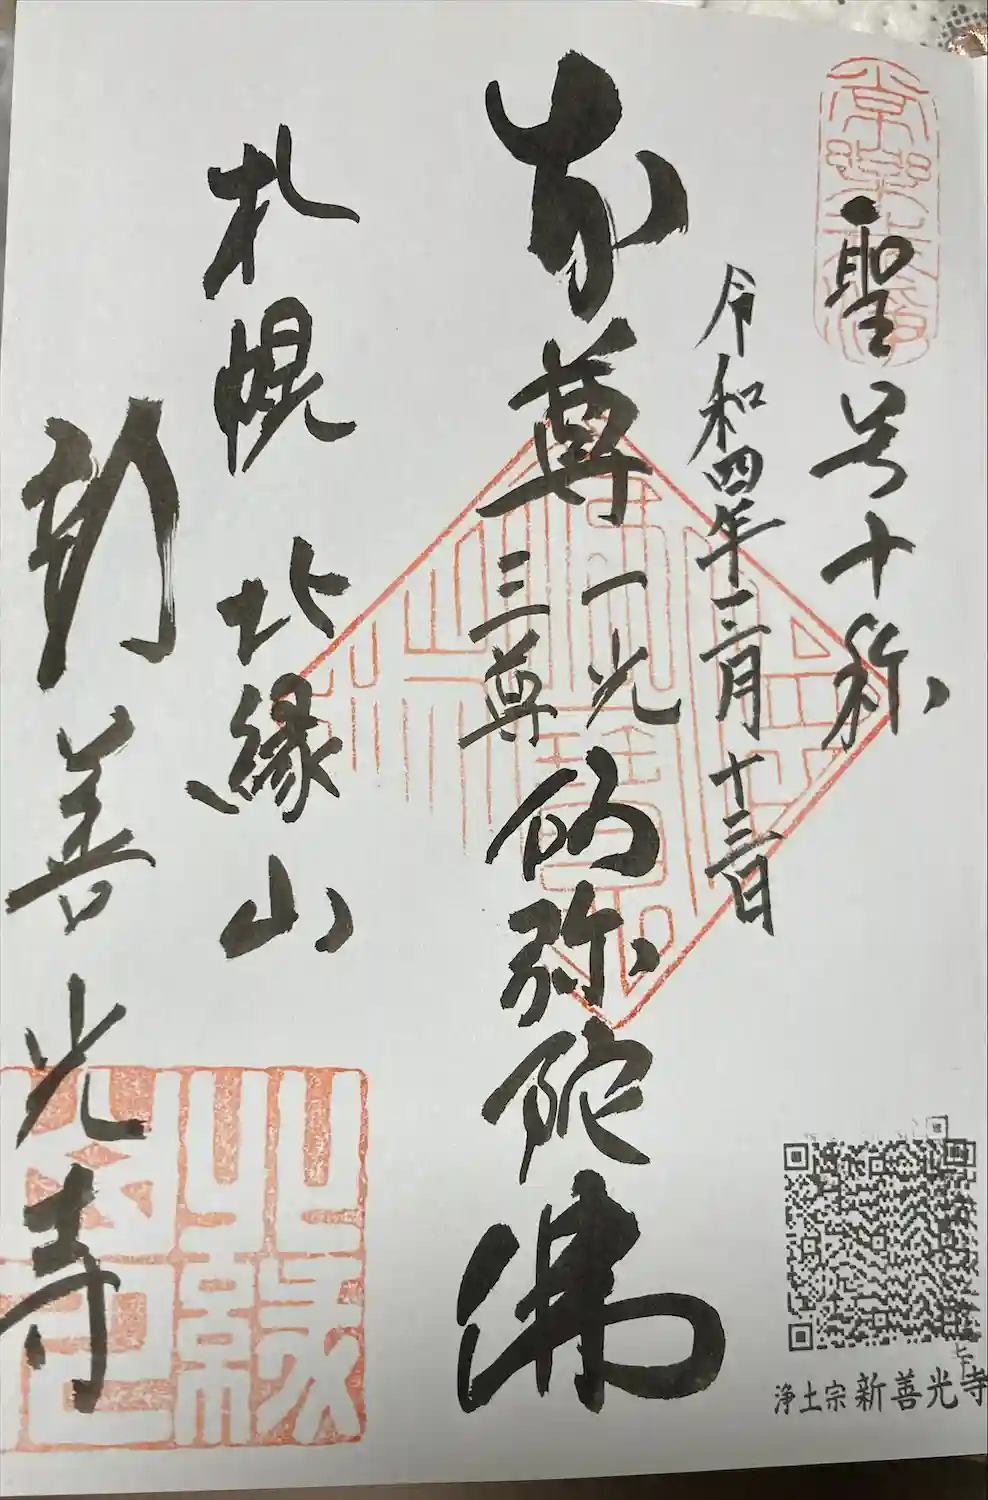 聖号十称
令和四年三月十三日
本尊
一光
三尊
阿弥陀佛
札幌 北縁山
新善光寺
浄土宗 新善光寺